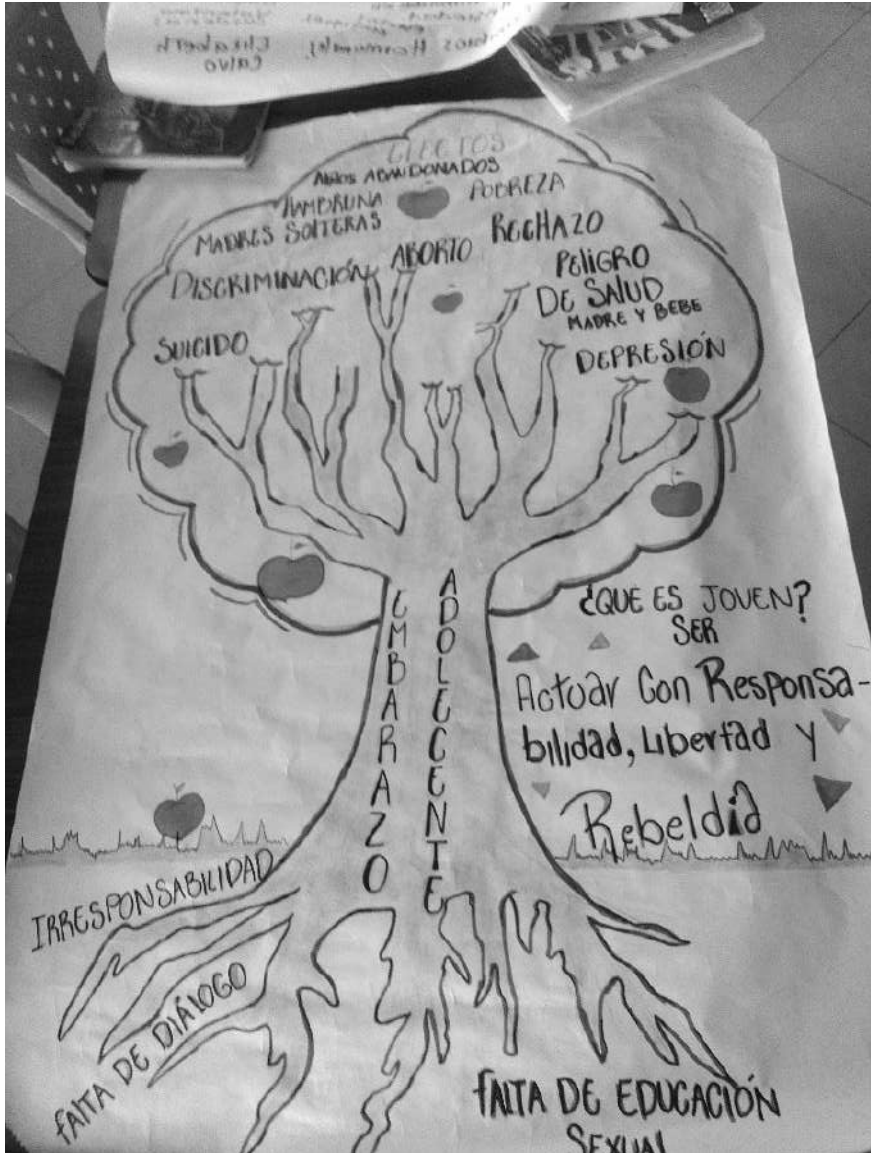 Elizabeth
Calvo
EFECTOS
NIÑOS ABANDONADOS
HAMBRUNA
POBREZA
MADRES SOLTERAS
RECHAZO
ABORTO
DISCRIMINACIÓN
PELIGRO
DE SALUD
MADRE Y BEBE
SUICIDO
DEPRESIÓN
EMBARAZO
ADOLECENTE
¿QUE ES JOVEN?
SER
Actuar Con Responsa-
bilidad, Libertad y
Rebeldia
IRRESPONSABILIDAD
FALTA DE DIÁLOGO
FALTA DE EDUCACIÓN
SEXUAL